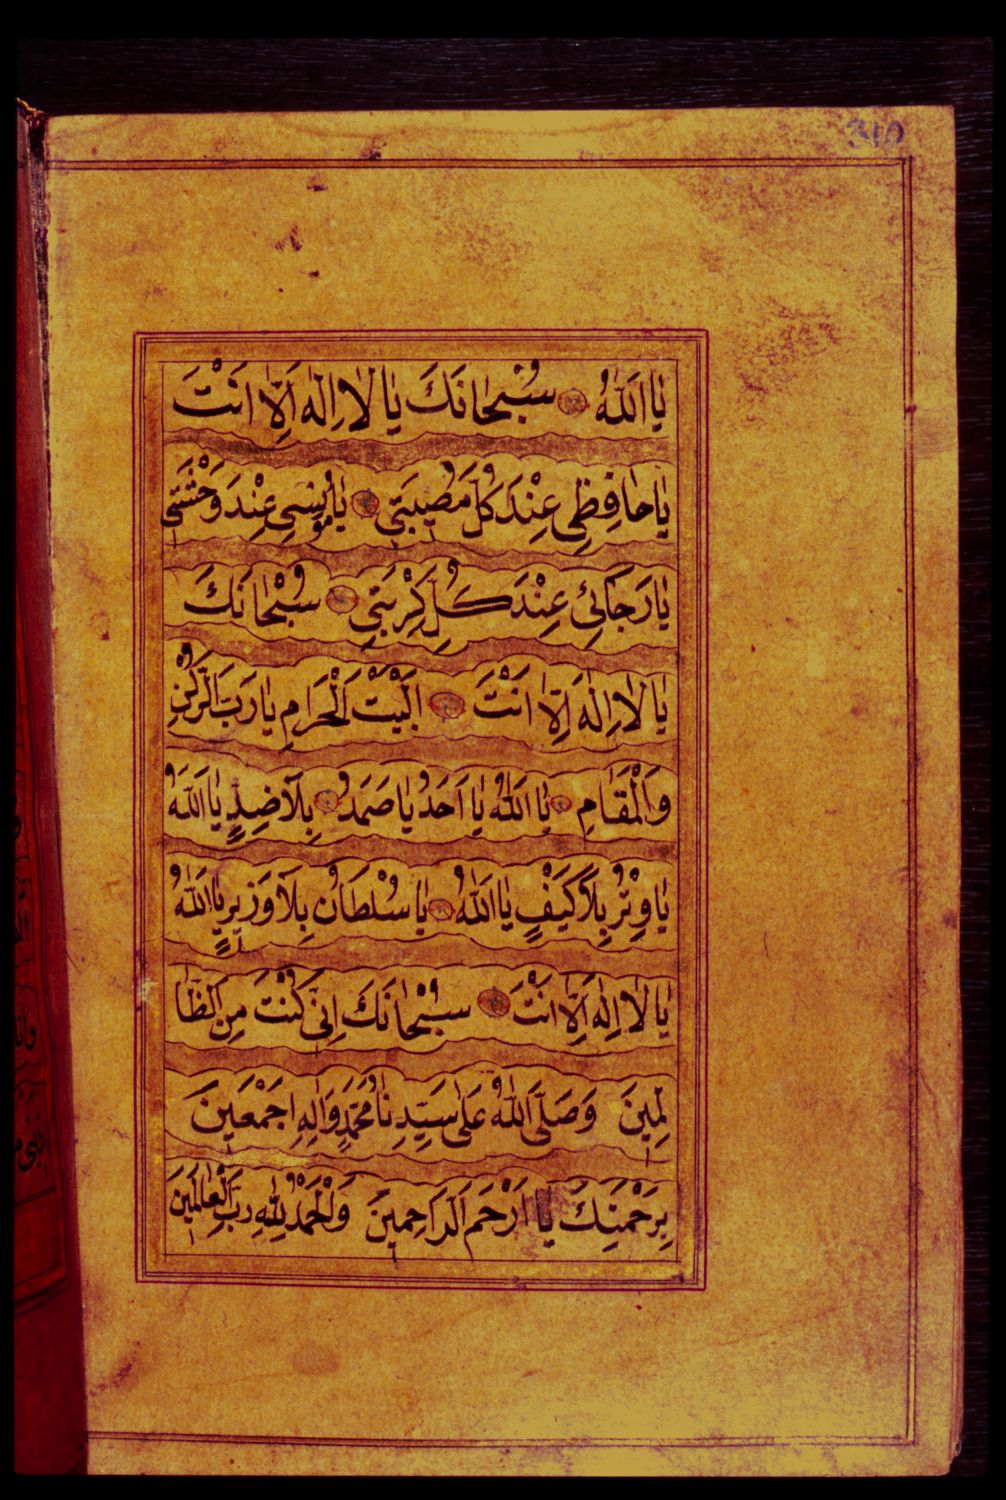 310
يَا اَللّٰهُ سُبْحَانَكَ يَا لَا اِلٰهَ اِلَّا اَنْتَ
يَا حَافِظِي عِنْدَ كُلِّ مُصِيبَتِي يَا مُونِسِي عِنْدَ وَحْشَتِي
يَا رَجَائِي عِنْدَ كُلِّ كُرْبَتِي سُبْحَانَكَ
يَا لَا اِلٰهَ اِلَّا اَنْتَ اَلْبَيْتِ الْحَرَامِ يَا رَبَّ الرُّكْنِ
وَالْمَقَامِ يَا اَللّٰهُ يَا اَحَدُ يَا صَمَدُ بِلَا ضِدٍّ يَا اَللّٰهُ
يَا وِتْرُ بِلَا كَيْفٍ يَا اَللّٰهُ يَا سُلْطَانُ بِلَا وَزِيرٍ يَا اَللّٰهُ
يَا لَا اِلٰهَ اِلَّا اَنْتَ سُبْحَانَكَ اِنِّي كُنْتُ مِنَ الظَّا
لِمِينَ وَصَلَّى اللّٰهُ عَلَى سَيِّدِنَا مُحَمَّدٍ وَاٰلِهِ اَجْمَعِينَ
بِرَحْمَتِكَ يَا اَرْحَمَ الرَّاحِمِينَ وَالْحَمْدُ لِلّٰهِ رَبِّ الْعَالَمِينَ